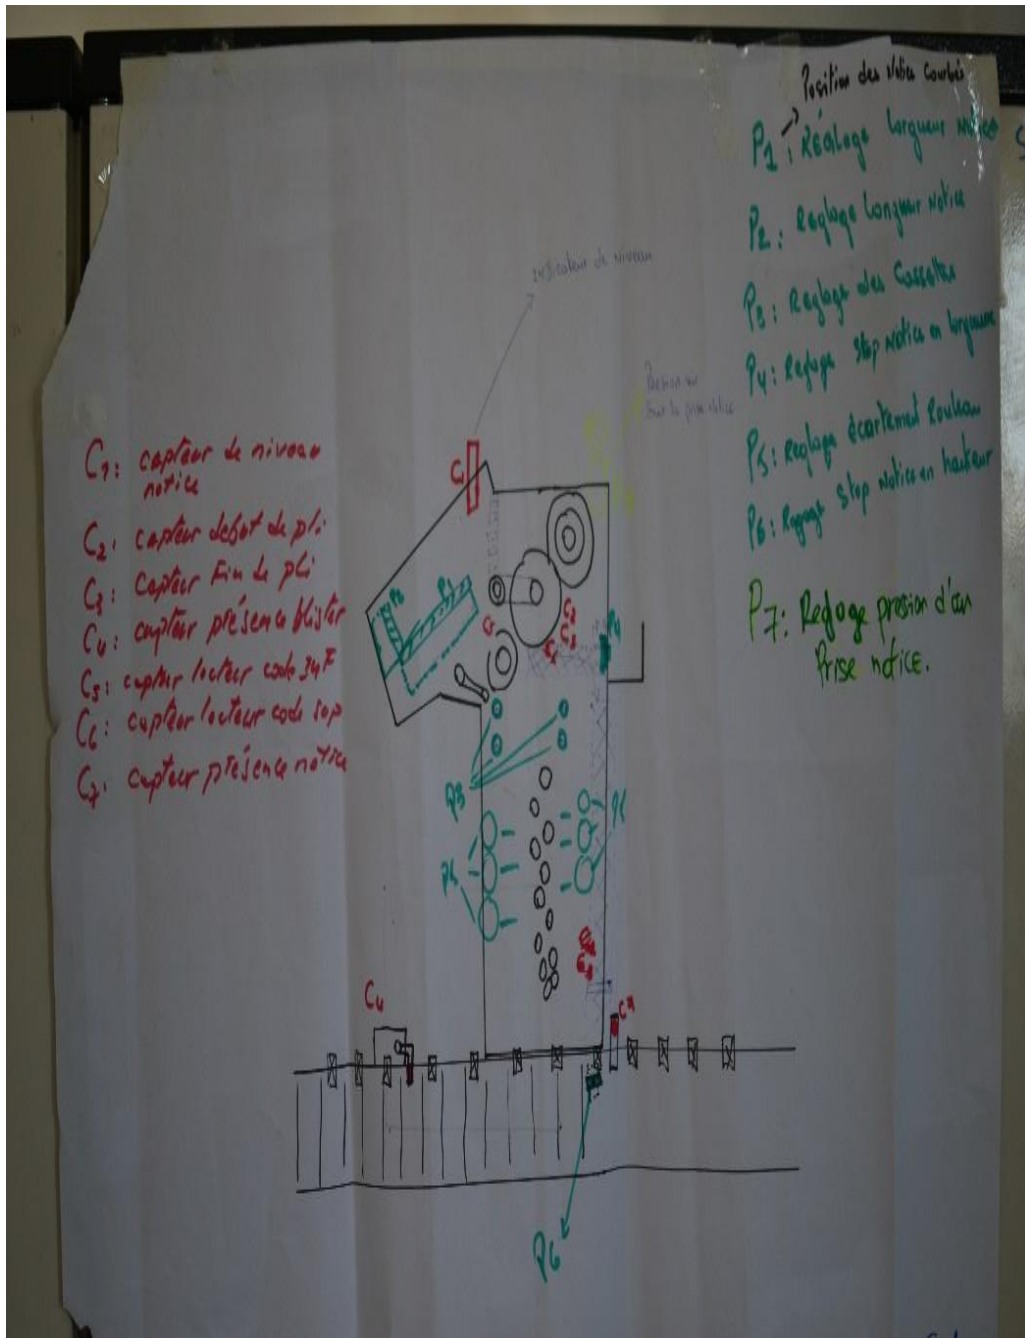 Position des Notice Courbés
P1: Réglage largueur Notice
P2: Reglage Longueur Notice
P3: Reglage des Cassettes
P4: Reglage Stop Notice en largueure
P5: Reglage écartement Rouleau
P6: Reglage Stop Notice en hauteur
P7: Reglage pression d'air
Prise notice.
Indicateur de niveau
Pression air
Pour la prise notice
C1: capteur de niveau
notice
C2: capteur debut de pli
C3: capteur Fin de pli
C4: capteur présence blister
C5: capteur lecteur code
C6: capteur lecteur code
C7: capteur présence notice
C1
P2
P1
P4
P3
P5
C4
C7
P6